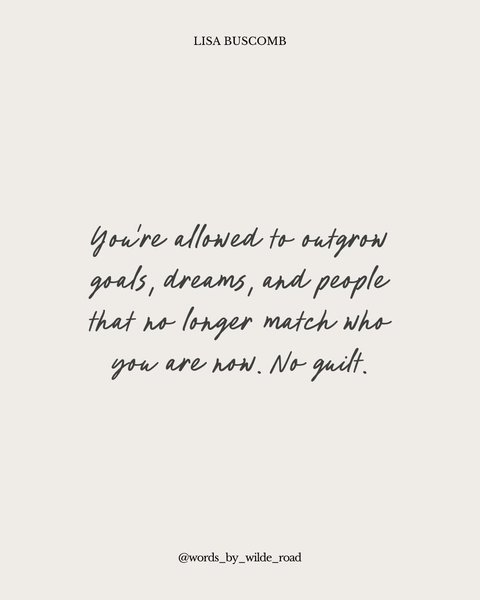 LISA BUSCOMB
You're allowed to outgrow
goals, dreams, and people
that no longer match who
you are now. No guilt.
@words_by_wilde_road